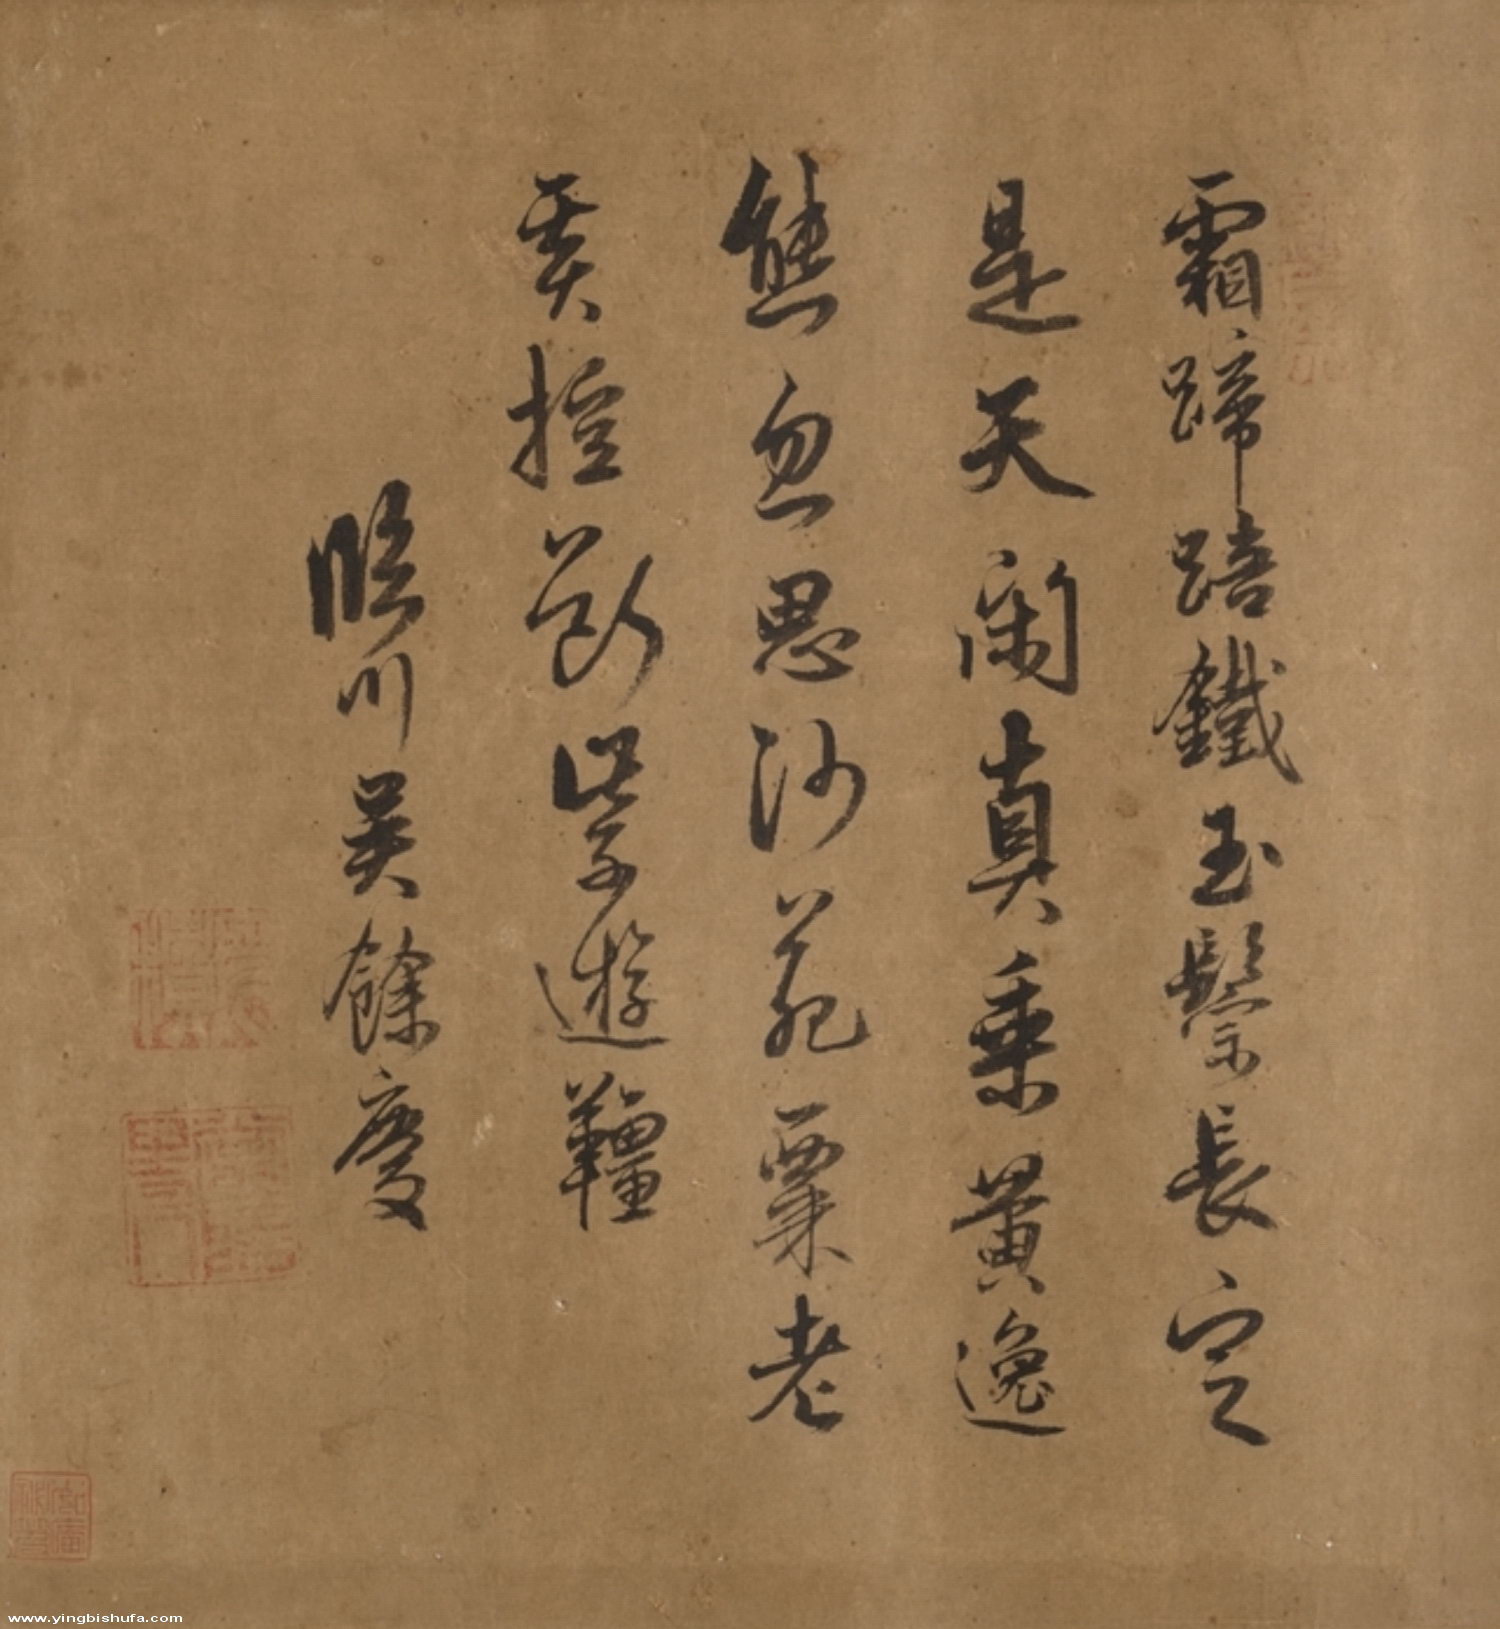 霜蹄踣鐵玉鬃長定
是天閑真乘黃逸
態忽思沙苑粟老
奚控斷紫遊韁
臨川吳餘慶
www.yingbishufa.com